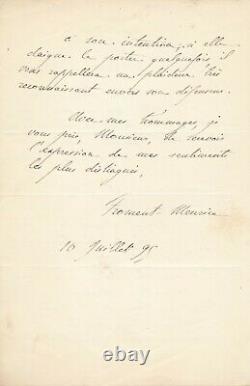 à son intention, si elle
daigne le porter quelquefois il
vous rappellera un plaideur très
reconnaissant envers son défenseur.
Avec mes hommages, je
vous prie, Monsieur, de recevoir
l'expression de mes sentiments
les plus distingués,
Froment Meurice
10 Juillet 95
© ebay.com